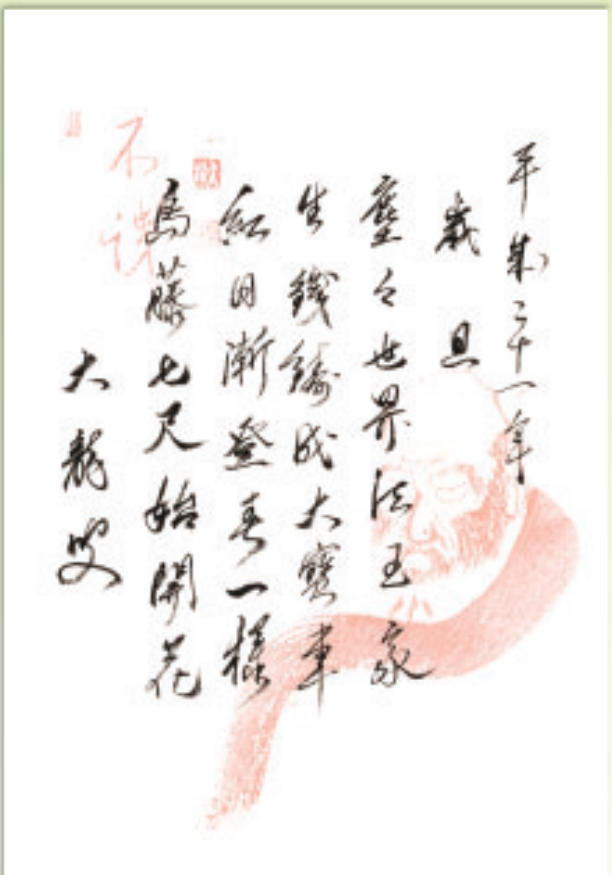 平成二十一年
歳旦
塵々世界法王家
生鐵鋳成大寶車
紅日漸登春一様
烏藤七尺始開花
大龍叟
不識